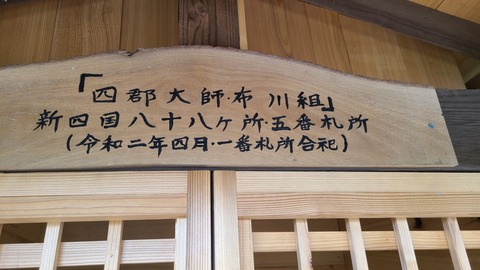 「四郡大師・布川組」
新四国八十八ヶ所・五番札所
(令和二年四月・一番札所合祀)